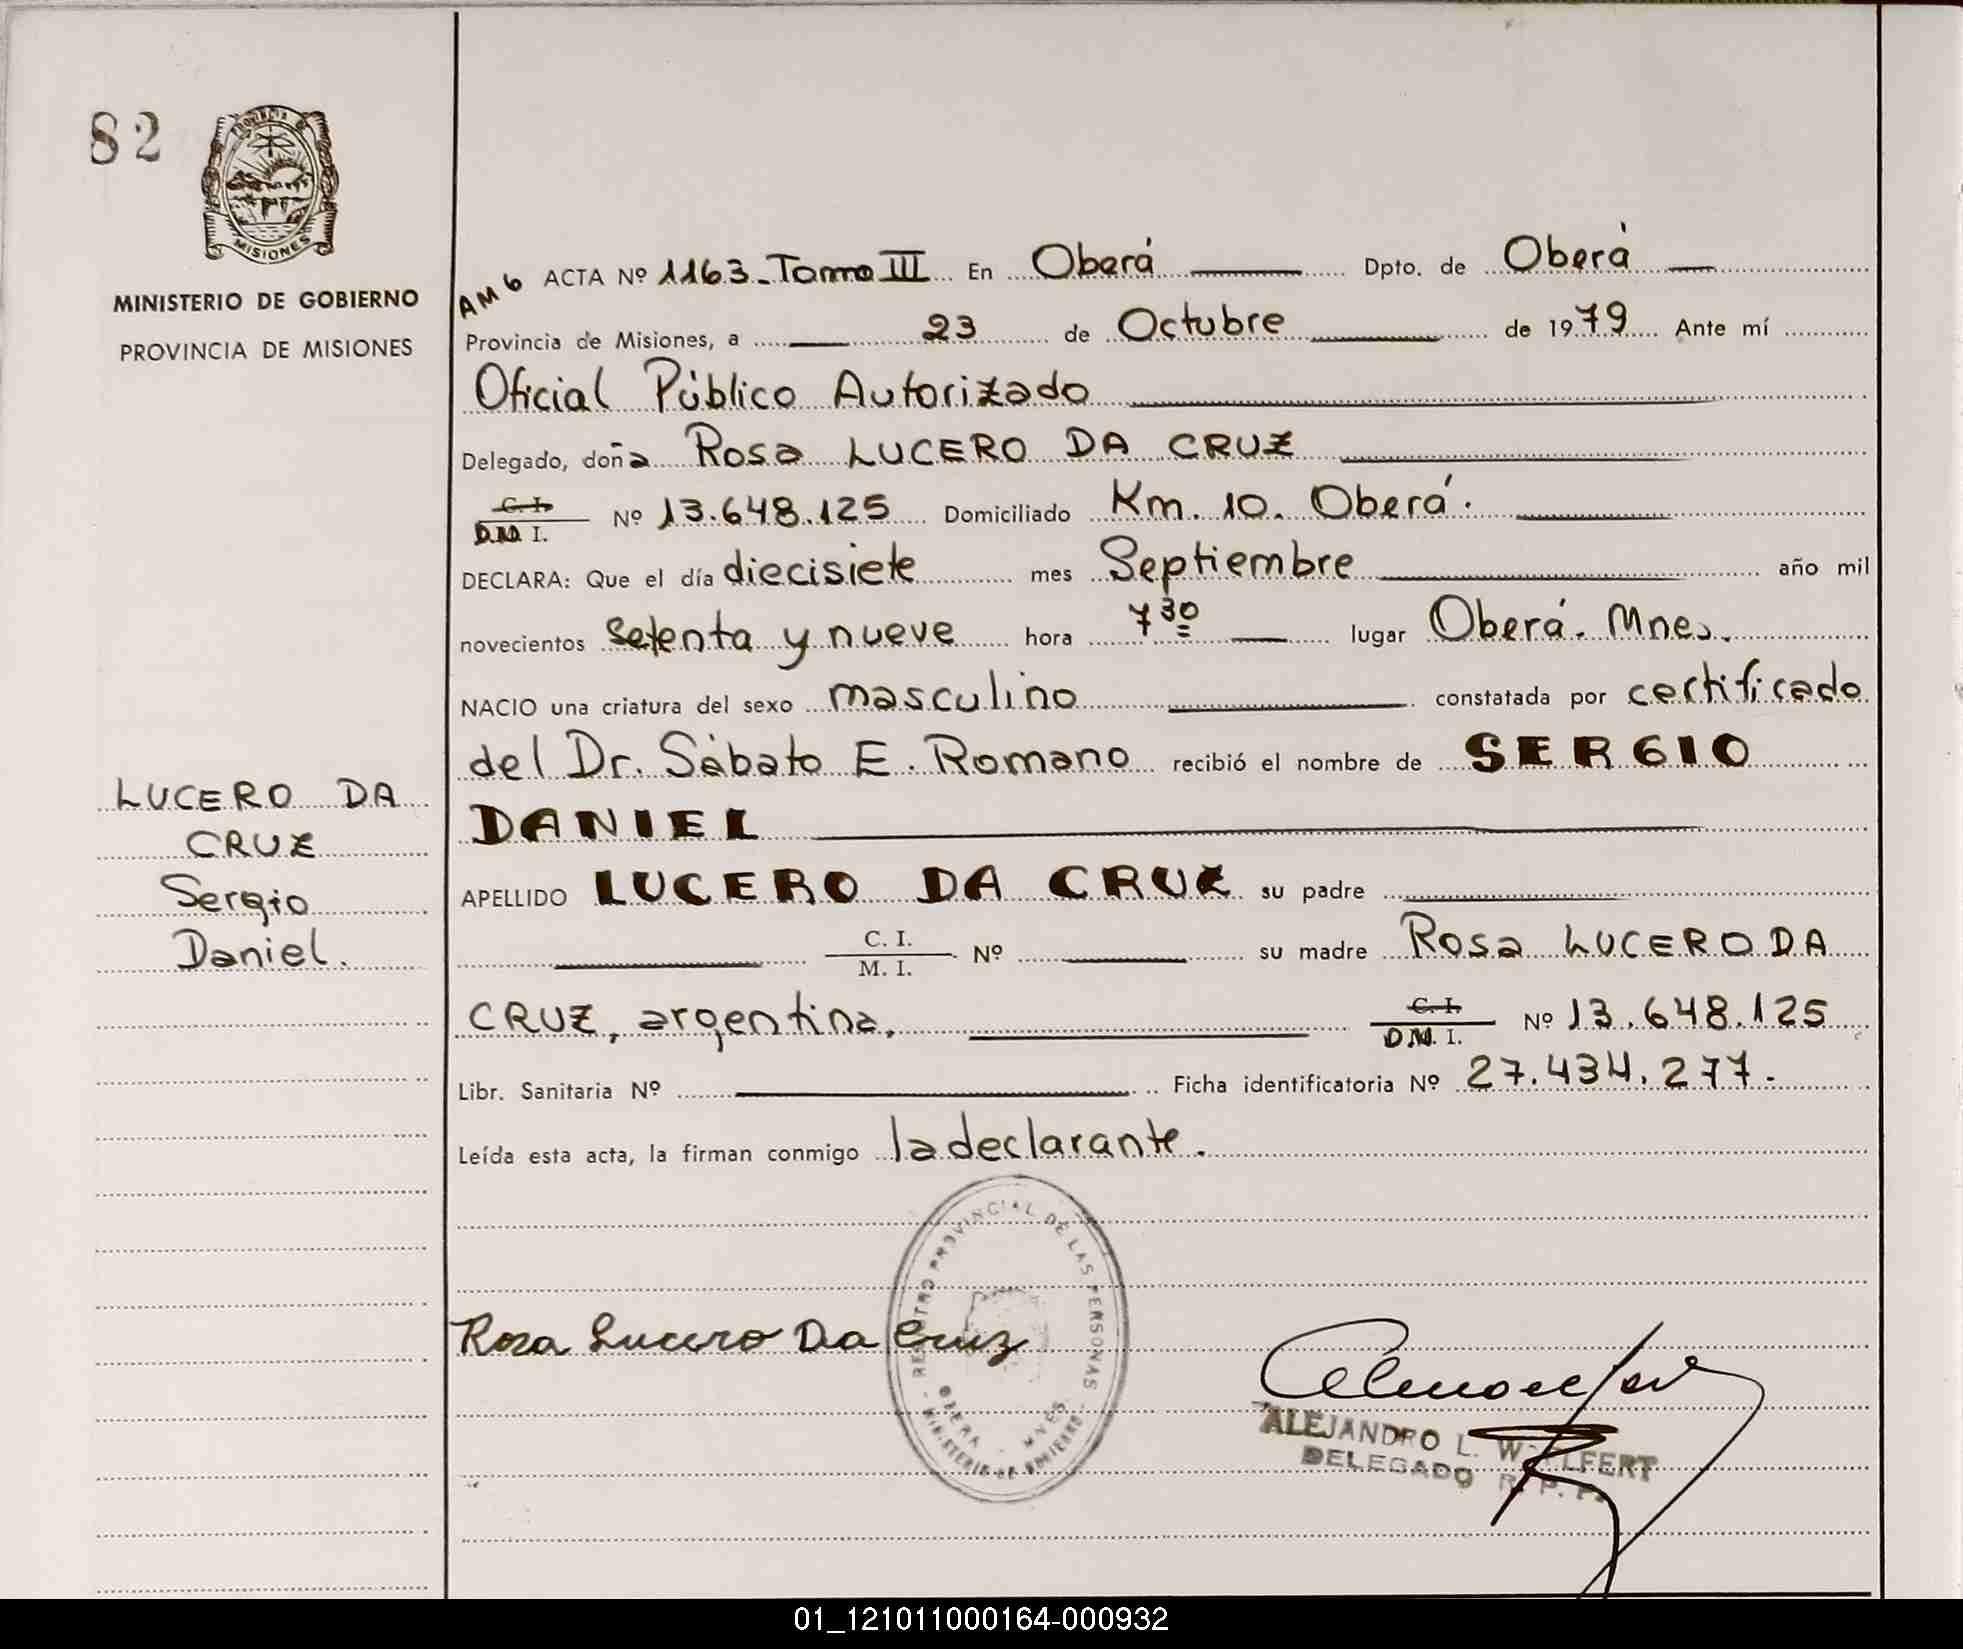 82
PROVINCIA DE
MISIONES
MINISTERIO DE GOBIERNO
PROVINCIA DE MISIONES
LUCERO DA
CRUZ
Sergio
Daniel.
AM6 ACTA Nº 1163-Tomo III En Oberá Dpto. de Oberá
Provincia de Misiones, a 23 de Octubre de 1979 Ante mí
Oficial Público Autorizado
Delegado, doña Rosa LUCERO DA CRUZ
C. I.
D.N. I. Nº 13.648.125 Domiciliado Km. 10. Oberá.
DECLARA: Que el día diecisiete mes Septiembre año mil
novecientos setenta y nueve hora 7 30 lugar Oberá. Mnes.
NACIO una criatura del sexo masculino constatada por certificado
del Dr. Sábato E. Romano recibió el nombre de SERGIO
DANIEL
APELLIDO LUCERO DA CRUZ su padre
C. I.
M. I. Nº su madre Rosa LUCERO DA
CRUZ, argentina, C. I.
D.N. I. Nº 13.648.125
Libr. Sanitaria Nº Ficha identificatoria Nº 27.434.277.
Leída esta acta, la firman conmigo la declarante.
REGISTRO PROVINCIAL DE LAS PERSONAS
OBERA - MNES
MINISTERIO DE GOBIERNO
Rosa Lucero Da Cruz
ALEJANDRO L. WOLFERT
DELEGADO R. P. P.
01_121011000164-000932